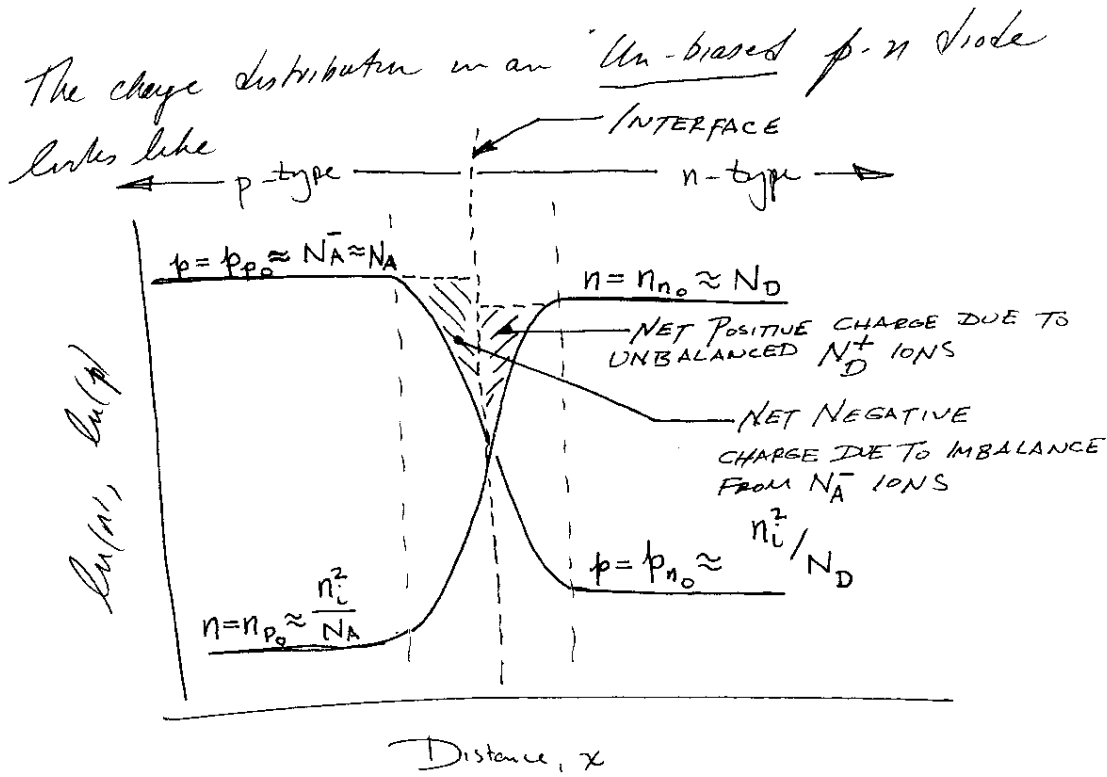 The charge distribution in an Un-biased p-n diode
looks like
INTERFACE
p-type
n-type
p = p_{p_0} ≈ N_A^- ≈ N_A
n = n_{n_0} ≈ N_D
NET POSITIVE CHARGE DUE TO
UNBALANCED N_D^+ IONS
NET NEGATIVE
CHARGE DUE TO IMBALANCE
FROM N_A^- IONS
ln(n), ln(p)
n = n_{p_0} ≈ n_i^2 / N_A
p = p_{n_0} ≈ n_i^2 / N_D
Distance, x